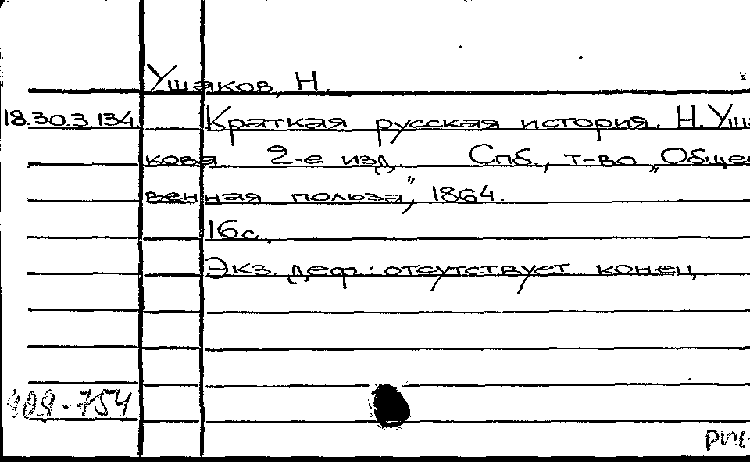 Ушаков, Н.
18.30.3.134 Краткая русская история. Н. Уша
кова 2-е изд. Спб., т-во „Общес
венная польза", 1864.
16с.
Экз. деф.: отсутствует конец
909-754